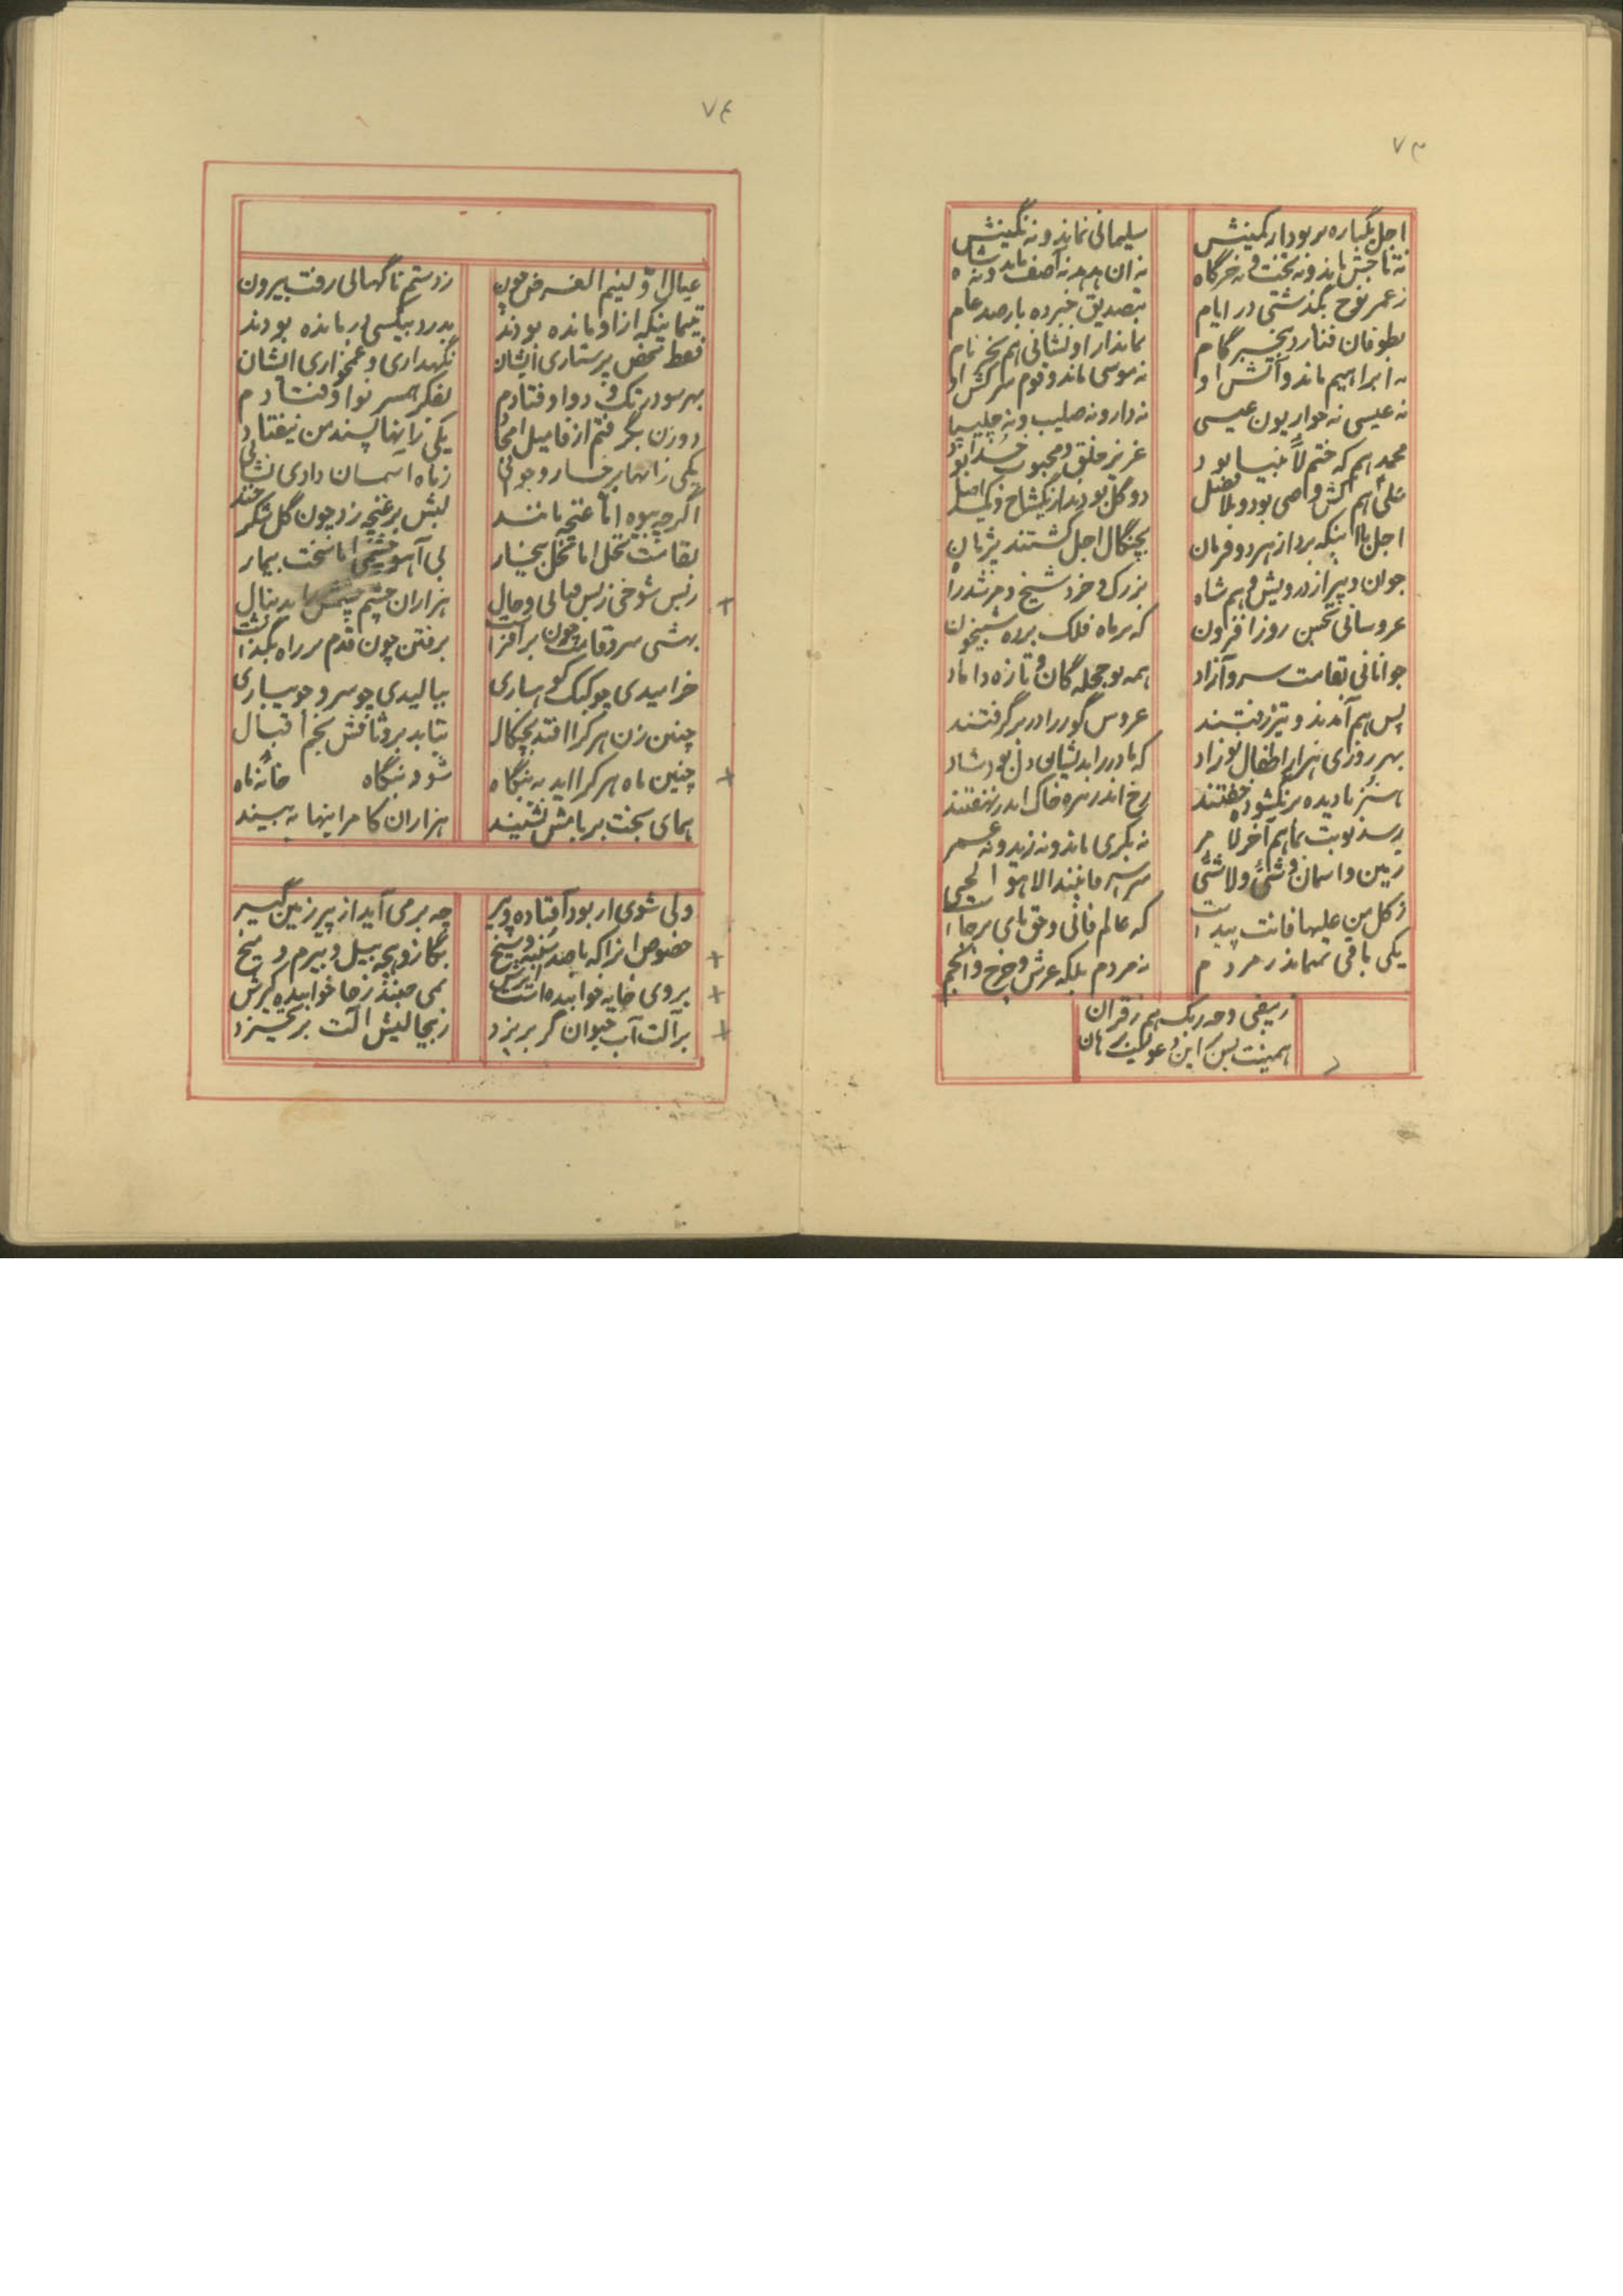 ٧٣
اجل یکباره بربود از کمینش سلیمانی نماند و نه نگینش
نه تاجش ماند و نه تخت و نه خرگاه نه ان هدهد نه آصف ماند و نه شاه
ز عمر نوح بگذشتی در ایام بتصدیق خبر ده بار صد عام
بطوفان فنا زد بیخبر گام نماند از او نشانی هم بجز نام
نه ابراهیم ماند و آتش او نه موسی ماند و قوم سرکش او
نه عیسی نه حواریون عیسی نه دار و نه صلیب و نه چلیپا
محمد هم که ختم لأنبیا بود عزیز خلق و محبوب خدا بود
علی هم کش وصی بود و بلا فصل دو گل بودند از یکشاخ و یک اصل
اجل با اینکه برد از هر دو فرمان بچنگال اجل گشتند پژمان
جوان و پیر از درویش و هم شاه بزرک و خرد شیخ و مرشد راه
عروسانی بحسن روز افزون که بر ماه فلک برده شبیخون
جوانانی بقامت سرو آزاد همه نو حجله گان و تازه داماد
پس هم آمدند و تیز رفتند عروس گور را در بر گرفتند
بهر روزی هزار اطفال نوزاد که مادر را بدیشان دل بود شاد
هنوز نادیده بر نگشوده خفتند رخ اندر تیره خاک اندر نهفتند
رسد نوبت بما هم آخر لامر نه بکری ماند و نه زید و نه عمر
زمین و اسمان و شئ و لاشئ سراسر فانیند الا هو الحی
ز کل من علیها فانت پیداست که عالم فانی و حق مای برجاست
یکی باقی نمیماند ز مردم نه مردم بلکه عرش و چرخ و انجم
ز یبقی وجه ربک هم ز قران
همینت بس که این دعویست برهان
٧٤
عیال اوّلینم الغرض چون ز دستم ناگهانی رفت بیرون
یتیمانیکه از او مانده بودند بدرد بیکسی درمانده بودند
فقط محض پرستاری ایشان نگهداری و غمخواری ایشان
بهر سو در تک و دو اوفتادم بفکر همسر نو اوفتادم
دو زن بگرفتم از فامیل امجاد یکی ز اینها پسند من نیفتاد
یکی زانها برخسار و جوانی ز ماه اسمان دادی نشانی
اگر چه بیوه اما غنچه مانند لبش بر غنچه زد چون گل شکر خند
بقامت نخل اما نخل بیخار بی آهو چشمی اما سخت بیمار
ز بس شوخی ز بس مالی و حال هزاران چشم چشمش را بدنبال
بهشتی سرو قامت چون برافراشت برفتن چون قدم بر راه بگذاشت
خرامیدی چو کبک کوهساری ببالیدی چو سرو جویباری
چنین زن هر که را افتد بچنگال بتابد بر وثاقش نجم اقبال
چنین ماه هر که را اید به بنگاه شود بنگاه خانه ماه
همای بخت بر بامش نشیند هزاران کامرانیها به بیند
ولی شوی ار بود افتاده و پیر چه بر می آید از پیر زمین گیر
خصوص انرا که با صد پنبه و سیخ بگاز و بچه بیل و بیرم و میخ
بروی خایه خوابیده است ایرش نمی جنبد ز جا خوابیده کیرش
بر آلت آب حیوان گر بریزد ز بیحالیش الت برنخیزد